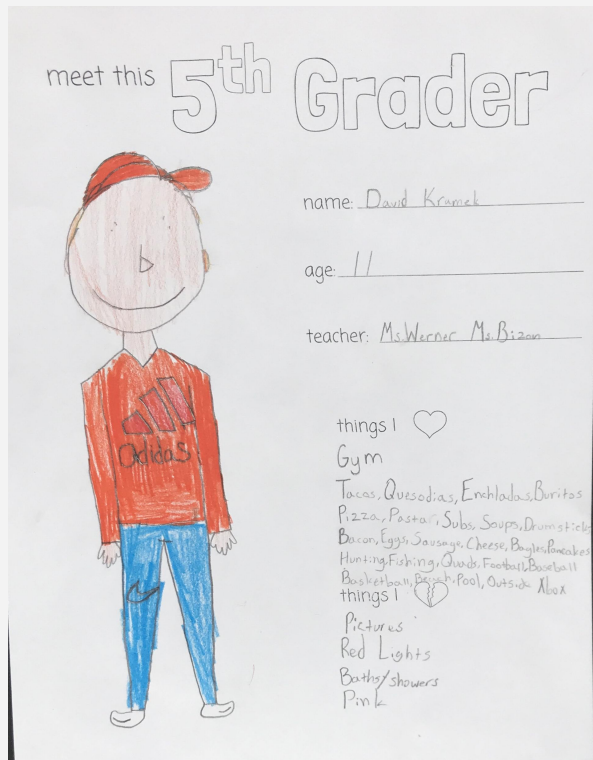 meet this 5th Grader
name: David Kramek
age: 11
teacher: Ms.Werner Ms.Bizon
adidas
things I
Gym
Tacos, Quesodias, Enchladas, Buritos
Pizza, Pasta, Subs, Soups, Drumsticks
Bacon, Eggs, Sausage, Cheese, Bagles, Pancakes
Hunting, Fishing, Quads, Football, Baseball
Basketball, Beach, Pool, Outside Xbox
things I
Pictures
Red Lights
Baths/showers
Pink